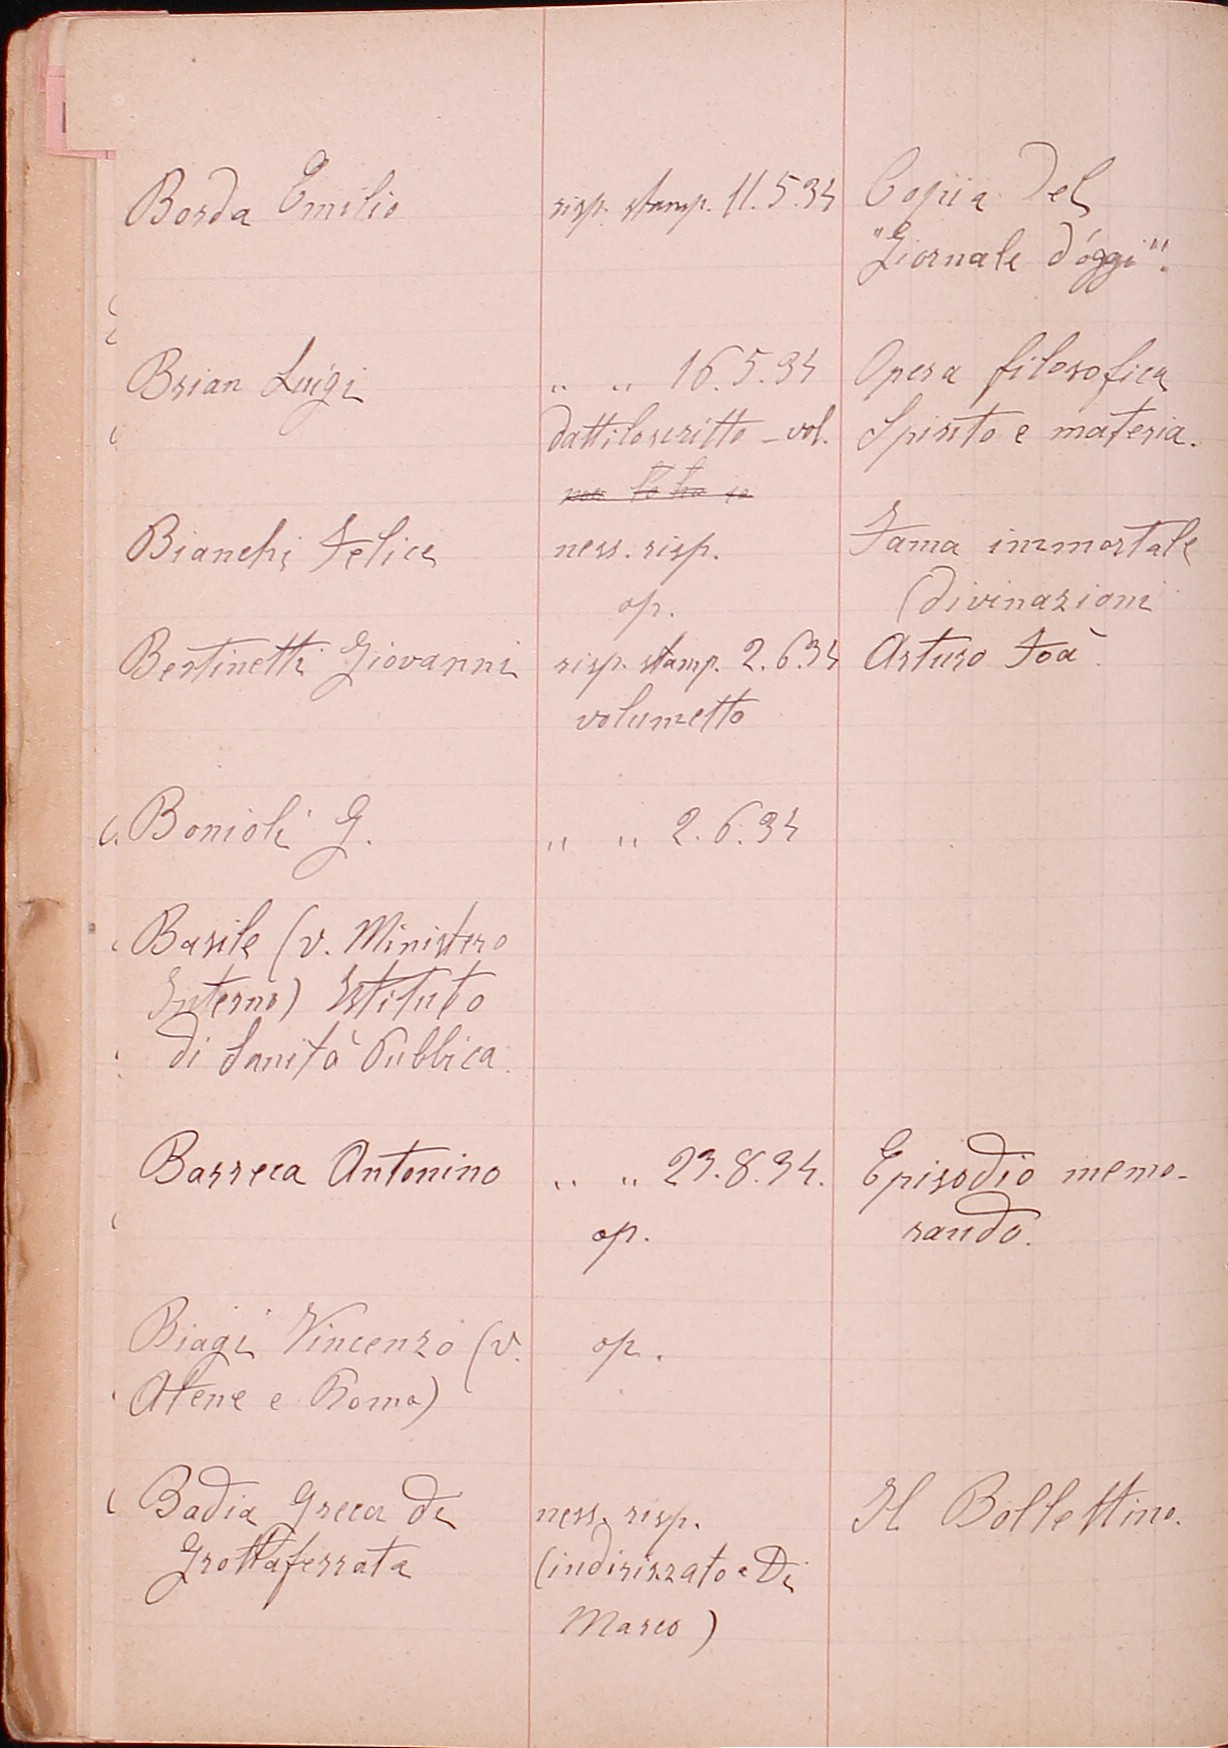 Borda Emilio risp. stamp. 11.5.34 Copia del
"Giornale d'oggi".
Brian Luigi " " 16.5.34 Opera filosofica
dattiloscritto - vol. Spirito e materia.
Bianchi Felice ness. risp. Fama immortale
op. (divinazioni
Bertinetti Giovanni risp. stamp. 2.6.34 Arturo Foà.
volumetto
Bonioli G. " " 2.6.34
Basile (v. Ministero
Interno) Istituto
di Sanità Pubblica.
Barreca Antonino " " 23.8.34. Episodio memo-
op. rando.
Biagi Vincenzo (v. op.
Atene e Roma)
Badia Greca di ness. risp. Il Bollettino.
Grottaferrata (indirizzato a Di
Marco)